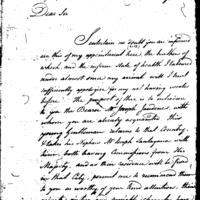 Dear Sir
I entertain no doubt you are informed
on this of my appointment here, the business of
which, and the infirm state of health I laboured
under almost since my arrival will I trust
sufficiently apologize for my not having wrote
before. The purport of this is to introduce
to you the Bearer Mr Joseph with
whom you are already acquainted this
young Gentleman returns to that Country
& takes his Nephew Mr Joseph with
him, both having Commissions from His
Majesty, and as their residence will be fixed
in that City, permit me to recommend them
to you as worthy of your kind attention. their